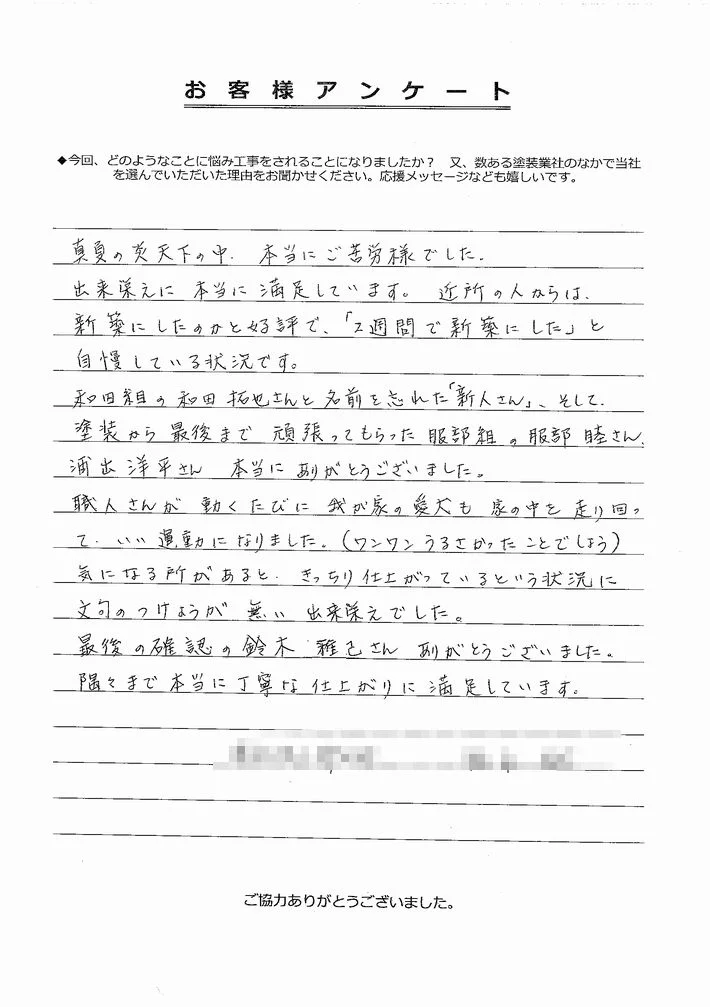 お客様アンケート
◆今回、どのようなことに悩み工事をされることになりましたか？　又、数ある塗装業社のなかで当社
を選んでいただいた理由をお聞かせください。応援メッセージなども嬉しいです。
真夏の炎天下の中、本当にご苦労様でした。
出来栄えに 本当に 満足しています。 近所の人からは、
新築にしたのかと好評で、「2週間で新築にした」と
自慢している状況です。
和田組の和田 拓也さんと名前を忘れた「新人さん」、そして、
塗装から 最後まで 頑張ってもらった 服部組の服部 睦さん、
浦出 洋平さん 本当に ありがとうございました。
職人さんが 動くたびに 我が家の愛犬も 家の中を 走り回っ
て、いい 運動になりました。（ワンワンうるさかったことでしょう）
気になる所があると、きっちり仕上がっているという状況に
文句のつけようが 無い 出来栄えでした。
最後の確認の鈴木 雅己さん ありがとうございました。
隅々まで本当に丁寧な仕上がりに 満足しています。
ご協力ありがとうございました。